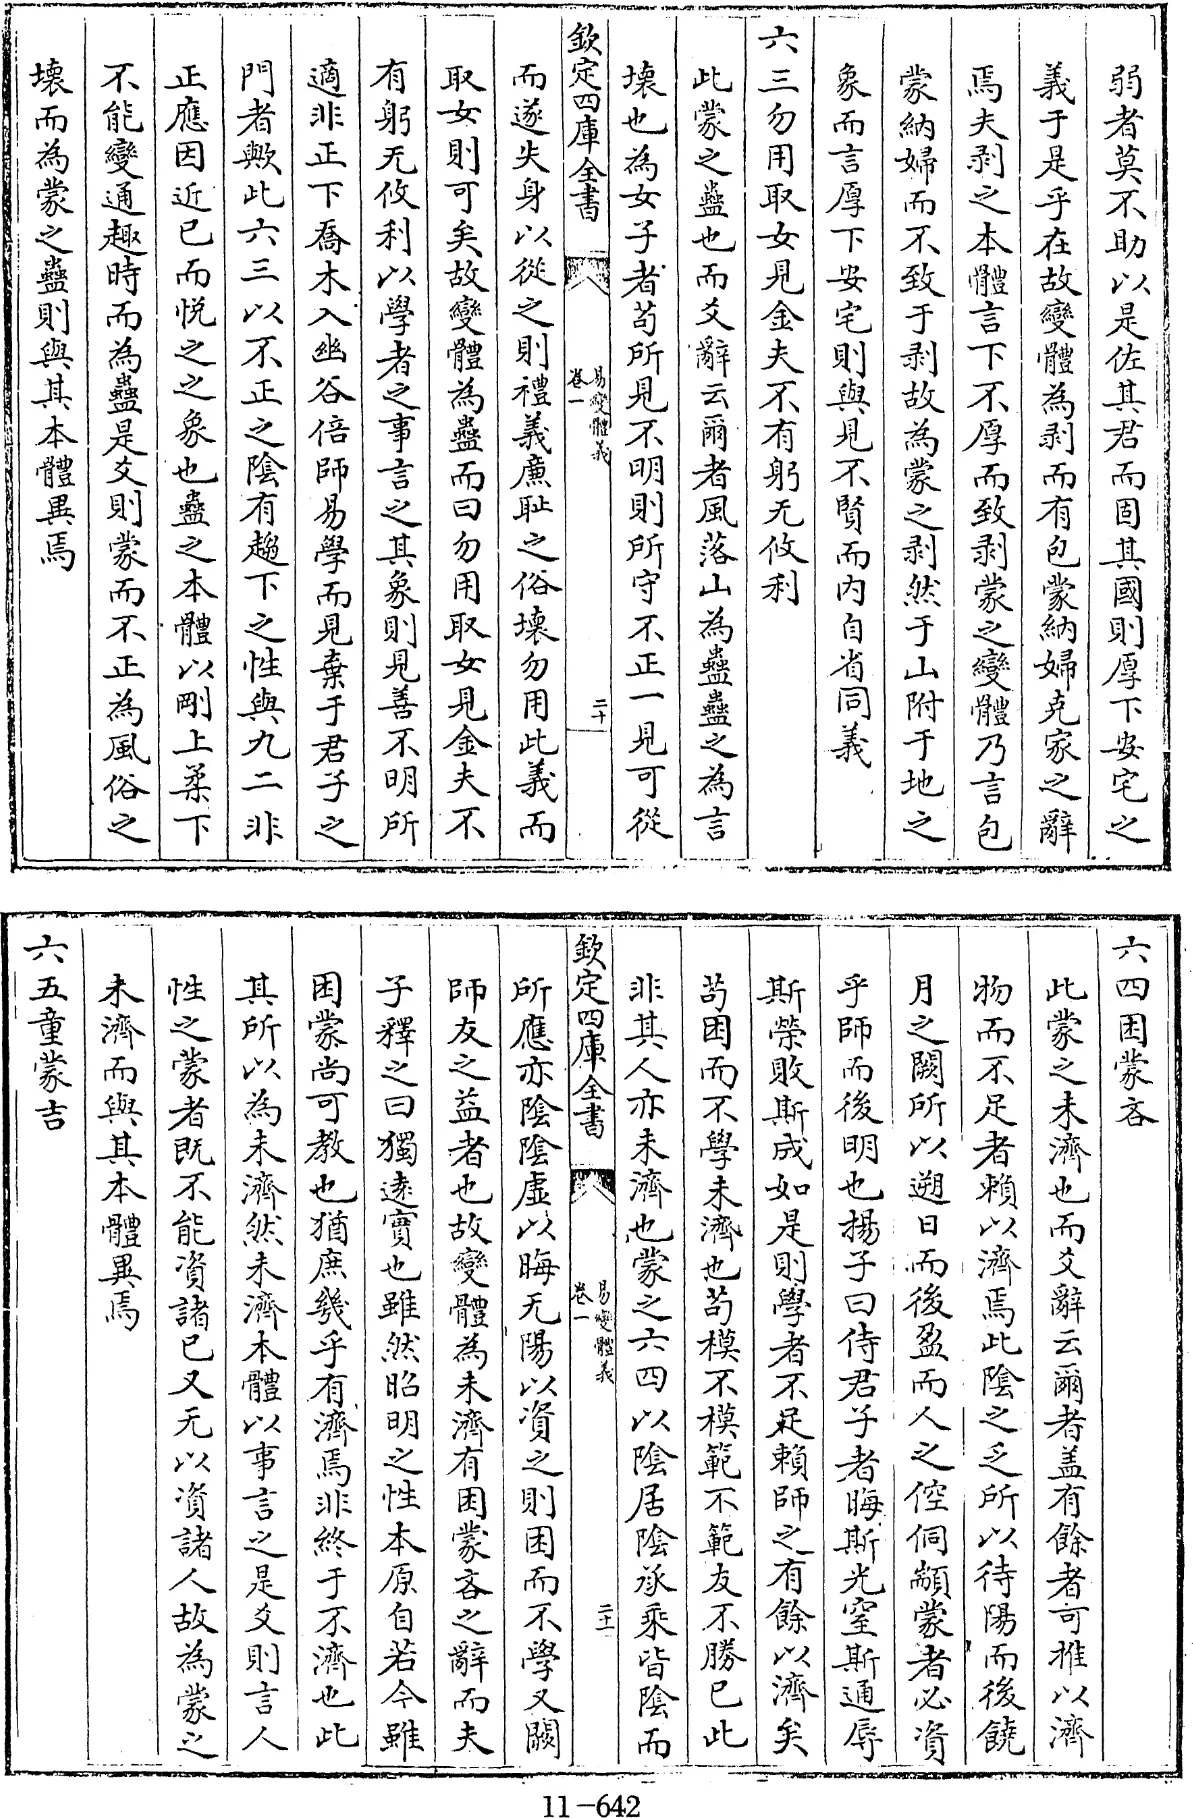 弱者莫不助以是佐其君而固其國則厚下安宅之
義于是乎在故變體為剥而有包蒙納婦克家之辭
焉夫剥之本體言下不厚而致剥蒙之變體乃言包
蒙納婦而不致于剥故為蒙之剥然于山附于地之
象而言厚下安宅則與見不賢而内自省同義
六三勿用取女見金夫不有躬无攸利
此蒙之蠱也而爻辭云爾者風落山為蠱蠱之為言
壞也為女子者苟所見不明則所守不正一見可從
欽定四庫全書
易變體義
卷一
二十
而遂失身以從之則禮義廉耻之俗壞勿用此義而
取女則可矣故變體為蠱而曰勿用取女見金夫不
有躬无攸利以學者之事言之其象則見善不明所
適非正下喬木入幽谷倍師易學而見棄于君子之
門者歟此六三以不正之陰有趨下之性與九二非
正應因近已而悦之之象也蠱之本體以剛上柔下
不能變通趣時而為蠱是爻則蒙而不正為風俗之
壞而為蒙之蠱則與其本體異焉
六四困蒙吝
此蒙之未濟也而爻辭云爾者盖有餘者可推以濟
物而不足者賴以濟焉此陰之乏所以待陽而後饒
月之闕所以遡日而後盈而人之倥侗顓蒙者必資
乎師而後明也揚子曰侍君子者晦斯光窒斯通辱
斯榮敗斯成如是則學者不足賴師之有餘以濟矣
苟困而不學未濟也苟模不模範不範友不勝已此
非其人亦未濟也蒙之六四以陰居陰承乘皆陰而
欽定四庫全書
易變體義
卷一
二十一
所應亦陰陰虛以晦无陽以資之則困而不學又闕
師友之益者也故變體為未濟有困蒙吝之辭而夫
子釋之曰獨逺實也雖然昭明之性本原自若今雖
困蒙尚可教也猶庶幾乎有濟焉非終于不濟也此
其所以為未濟然未濟本體以事言之是爻則言人
性之蒙者既不能資諸已又无以資諸人故為蒙之
未濟而與其本體異焉
六五童蒙吉
11-642